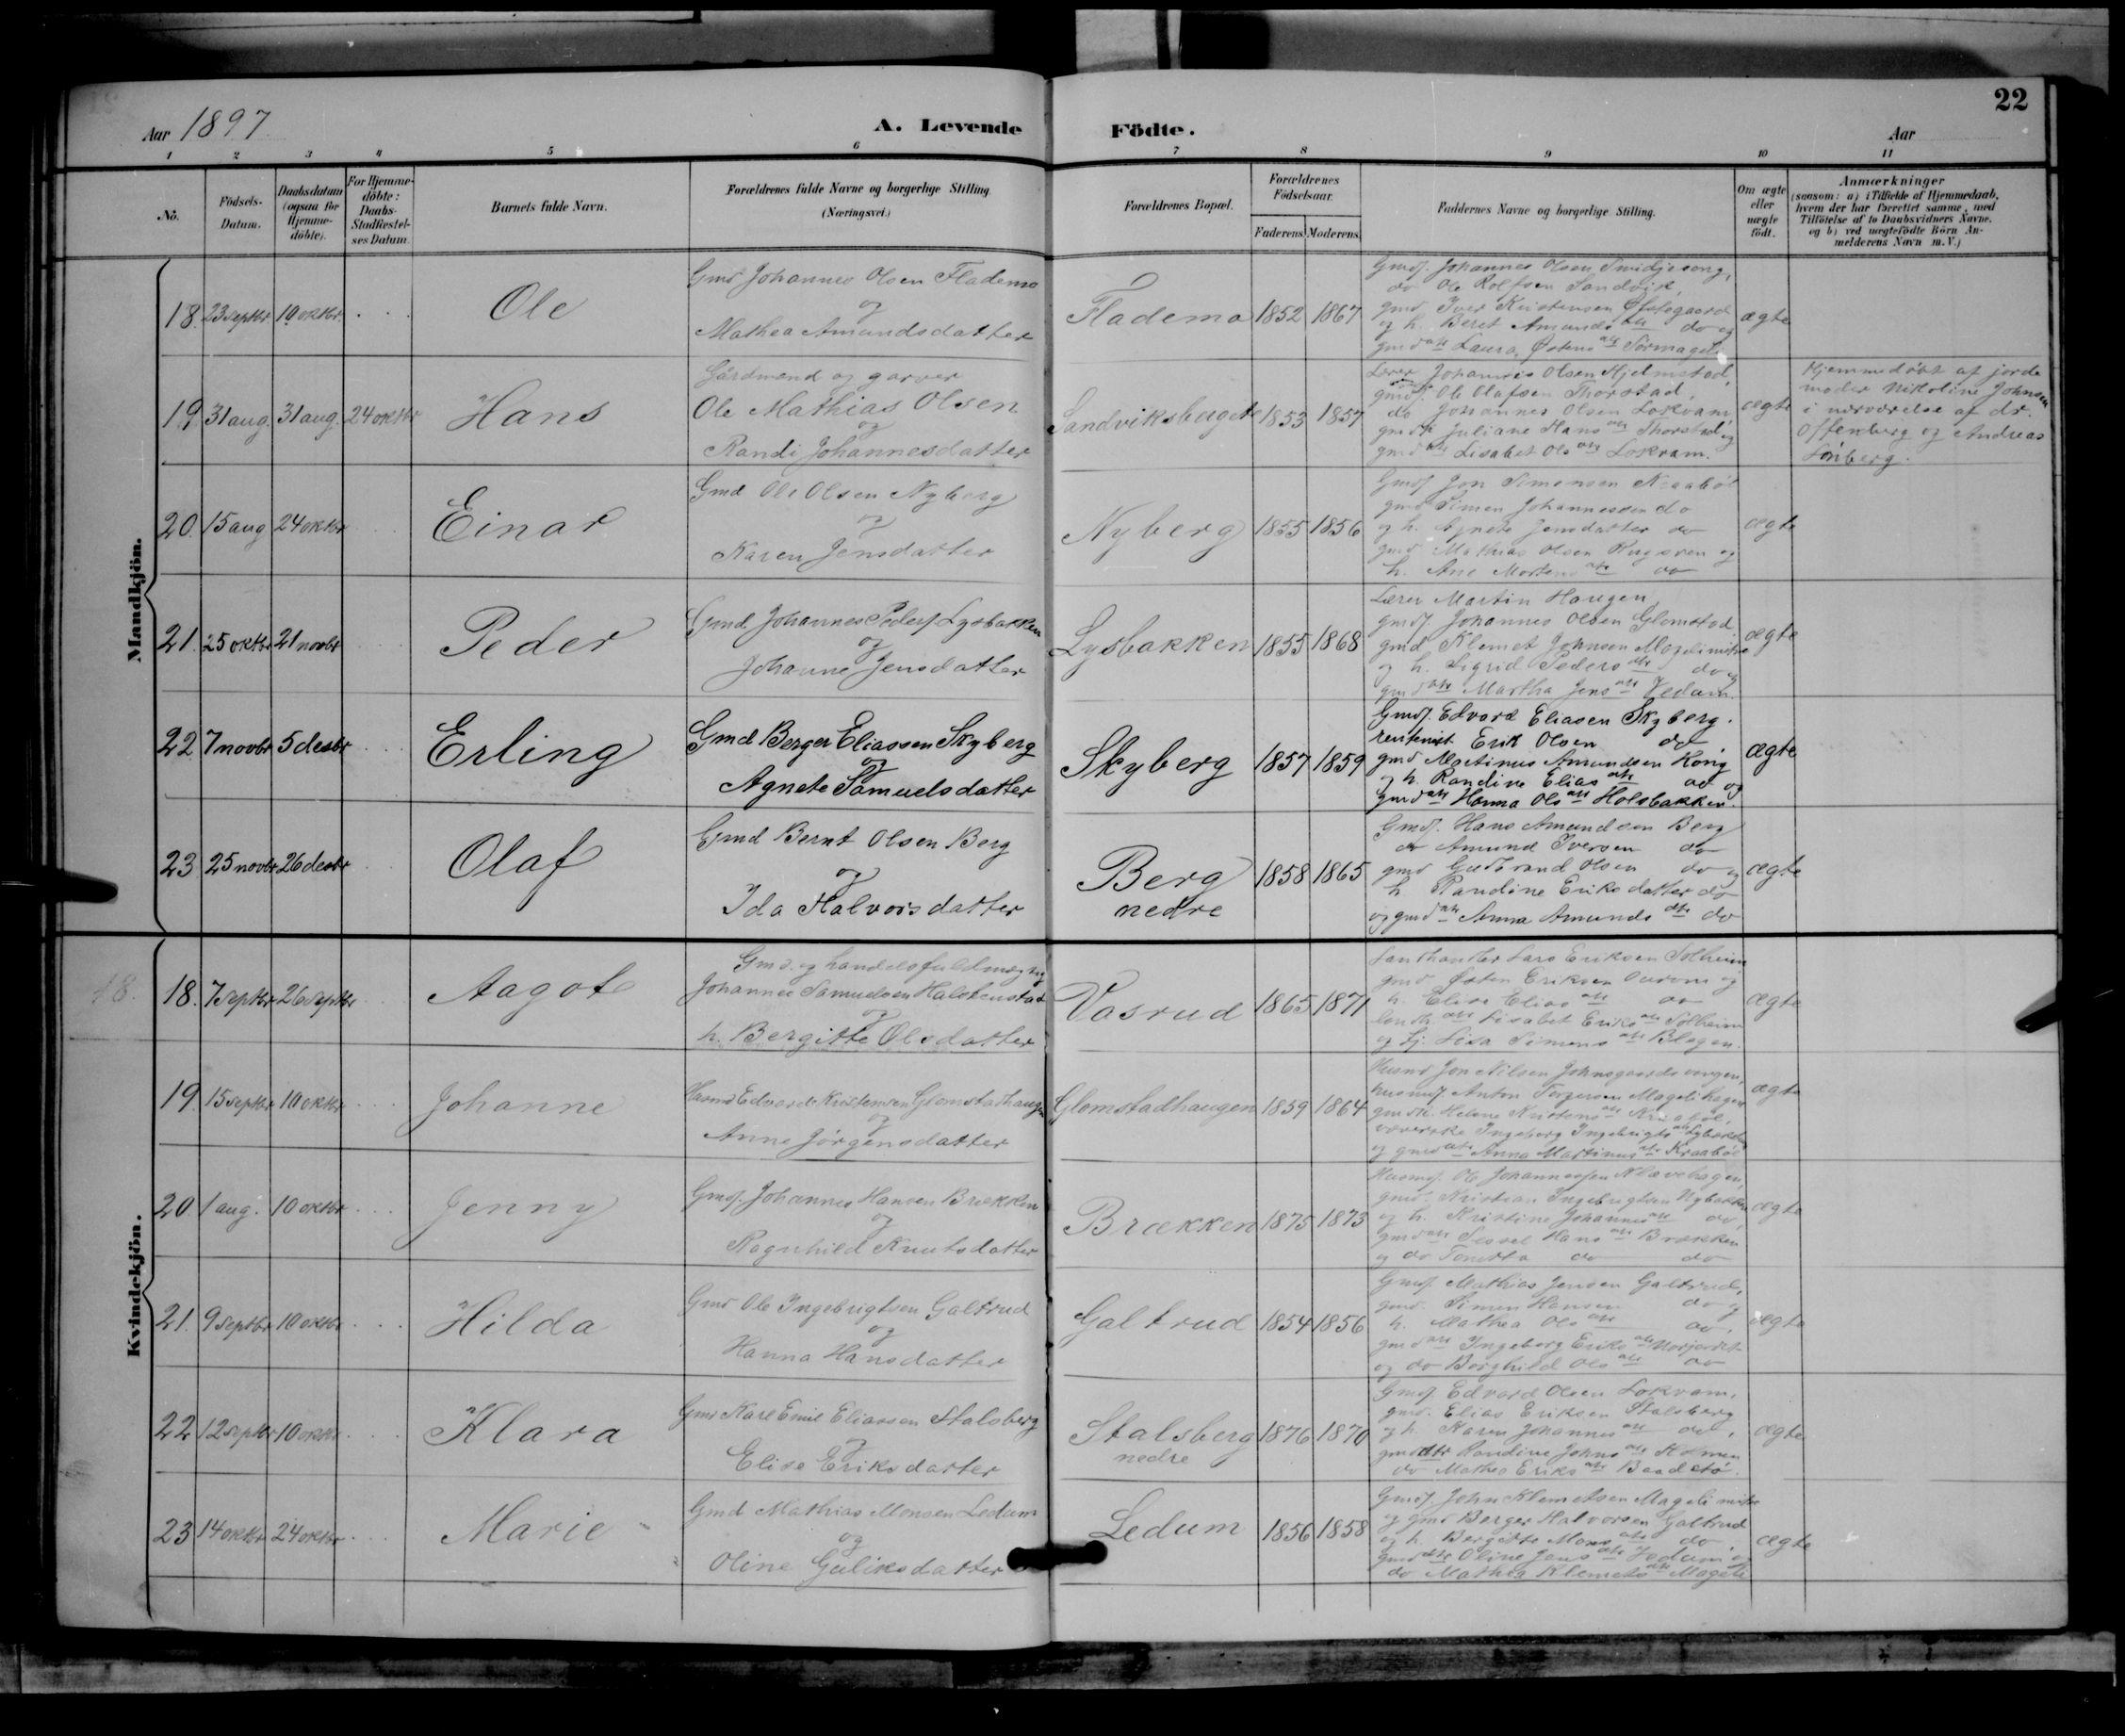 22
Aar 1897
A. Levende Födte.
Aar
1 2 3 4 5 6 7 8 9 10 11
No.
Födsels-Datum.
Daabsdatum (ogsaa for Hjemme-döbte).
For Hjemme-döbte: Daabs-Stadfæstel-ses Datum.
Barnets fulde Navn.
Forældrenes fulde Navne og borgerlige Stilling.
(Næringsvei.)
Forældrenes Bopæl.
Forældrenes Födselsaar.
Faderens. Moderens.
Faddernes Navne og borgerlige Stilling.
Om ægte eller uægte födt.
Anmærkninger
(saasom: a) i Tilfælde af Hjemmedaab,
hvem der har forrettet samme, med
Tilföielse af to Daabsvidners Navne.
og b) ved uægtefödte Börn An-
melderens Navn m. V.)
Mandkjön.
18. 23 septbr. 10 oktbr. Ole
Gmd Johannes Olsen Fladema
og
Mathea Amundsdatter
Fladema 1852 1867
Gmds. Johannes Olsen Smidjeseng,
do Ole Rolfsen Sandvik,
gmd Iver Kristensen
og h. Beret Amunds dtr do og
gmd dtr Laura Østens dtr
ægte
19. 31 aug. 31 aug. 24 oktbr Hans
Gårdmand og garver
Ole Mathias Olsen
og
Randi Johannesdatter
Sandviksberget 1853 1857
Lærer Johannes Olsen Hjelmstad,
gmds. Ole Olafsen Thorstad,
do Johannes Olsen Lokvam,
gmd k Juliane Hans dtr Thorstad og
gmd dtr Lisabet Ols dtr Lokvam.
ægte
Hjemmedöbt af jorde
moder Nikoline Johnsen
i nærværelse af dr.
Offenberg og Andreas
Lönberg.
20. 15 aug 24 oktbr Einar
Gmd Ole Olsen Nyberg
og
Karen Jensdatter
Nyberg 1855 1856
Gmds Jon Simensen Kraabøl
gmd Simen Johannessen do
og h. Agnete Jensdatter do
gmd Mathias Olsen og
h. Ane Mortens dtr do
ægte
21. 25 oktbr 21 novbr Peder
Gmd. Johannes Peders. Lysbakken
og
Johanne Jensdatter
Lysbakken 1855 1868
Lærer Martin Haugen,
gmds. Johannes Olsen Glomstad
gmd Klemet Johnsen Magelimitre
og h. Sigrid Peders dtr do og
gmd dtr Martha Jens dtr Vedum.
ægte
22 7 novbr 5 desbr Erling
Gmd Berger Eliassen Skyberg
og
Agnete Samuelsdatter
Skyberg 1857 1859
Gmds. Edvard Eliasen Skyberg.
rentenist Erik Olsen do
gmd Martinus Amundsen Kong
og h. Randine Elias dtr do og
gmd dtr Hanna Ols dtr Holsbakken
ægte
23 25 novbr 26 desbr Olaf
Gmd Bernt Olsen Berg
og
Ida Halvorsdatter
Berg
nedre
1858 1865
Gmds. Hans Amundsen Berg
do Amund Iversen do
gmd Gudbrand Olsen do og
h Randine Eriks datter do
og gmd dtr Anna Amunds dtr do
ægte
Kvindekjön.
18.
18. 7 septbr 26 septbr Aagot
Gmd. og handelsfuldmægtig
Johannes Samuelsen Halstenstad
og
h. Bergitte Olsdatter
Vasrud 1865 1871
Landhandler Lars Eriksen Solheim
gmd Østen Eriksen og
h. Elise Elias dtr do
landh. dtr Lisabet Eriks dtr Solheim
og tj. Lisa Simens dtr
ægte
19. 15 septbr 10 oktbr Johanne
Husmd Edvard Kristensen Glomstadhaugen
og
Anne Jørgensdatter
Glomstadhaugen 1859 1864
Husmd Jon Nilsen Johnsgaardsvangen,
husms. Anton Torgersen Magelihagen
gmd k. Helene Kristens dtr Kraabøl,
væverske Ingeborg Ingebrigts dtr
og gmd dtr Anna Martinus dtr Kraabøl
ægte
20 1 aug. 10 oktbr Jenny
Gmds. Johannes Hansen Brækken
og
Ragnhild Knutsdatter
Brækken 1875 1873
Husms. Ole Johannessen Klævehagen,
gmd. Kristian Ingebrigtsen Nybakken
og h. Kristine Johannes dtr do,
gmd dtr Sissel Hans dtr Brækken
og do do do
ægte
21. 9 septbr 10 oktbr Hilda
Gmd Ole Ingebrigtsen Galtrud
og
Hanna Hansdatter
Galtrud 1854 1856
Gmds. Mathias Jensen Galtrud,
gmd. Simen Hansen do og
h. Mathea Ols dtr do,
gmd dtr Ingeborg Eriks dtr Norjordet
og do Borghild Ols dtr do
ægte
22 12 septbr 10 oktbr Klara
Gmd Karl Emil Eliassen Stalsberg
og
Elise Eriksdatter
Stalsberg
nedre
1876 1870
Gmds. Edvard Olsen Lokvam,
gmd. Elias Eriksen Stalsberg
og h. Karen Johannes dtr do,
gmd dtr Randine Johns dtr Holmen
do Mathea Eriks dtr Baadstø.
ægte
23 14 oktbr 24 oktbr Marie
Gmd Mathias Monsen Ledum
og
Oline Guliksdatter
Ledum 1856 1858
Gmds John Klemetsen Magelimitre
og gmd Berger Halvorsen Galtrud
og h. Bergitte Mons dtr do,
gmd dtr Oline Jens dtr Vedum og
do Mathea Klemets dtr Mageli
ægte